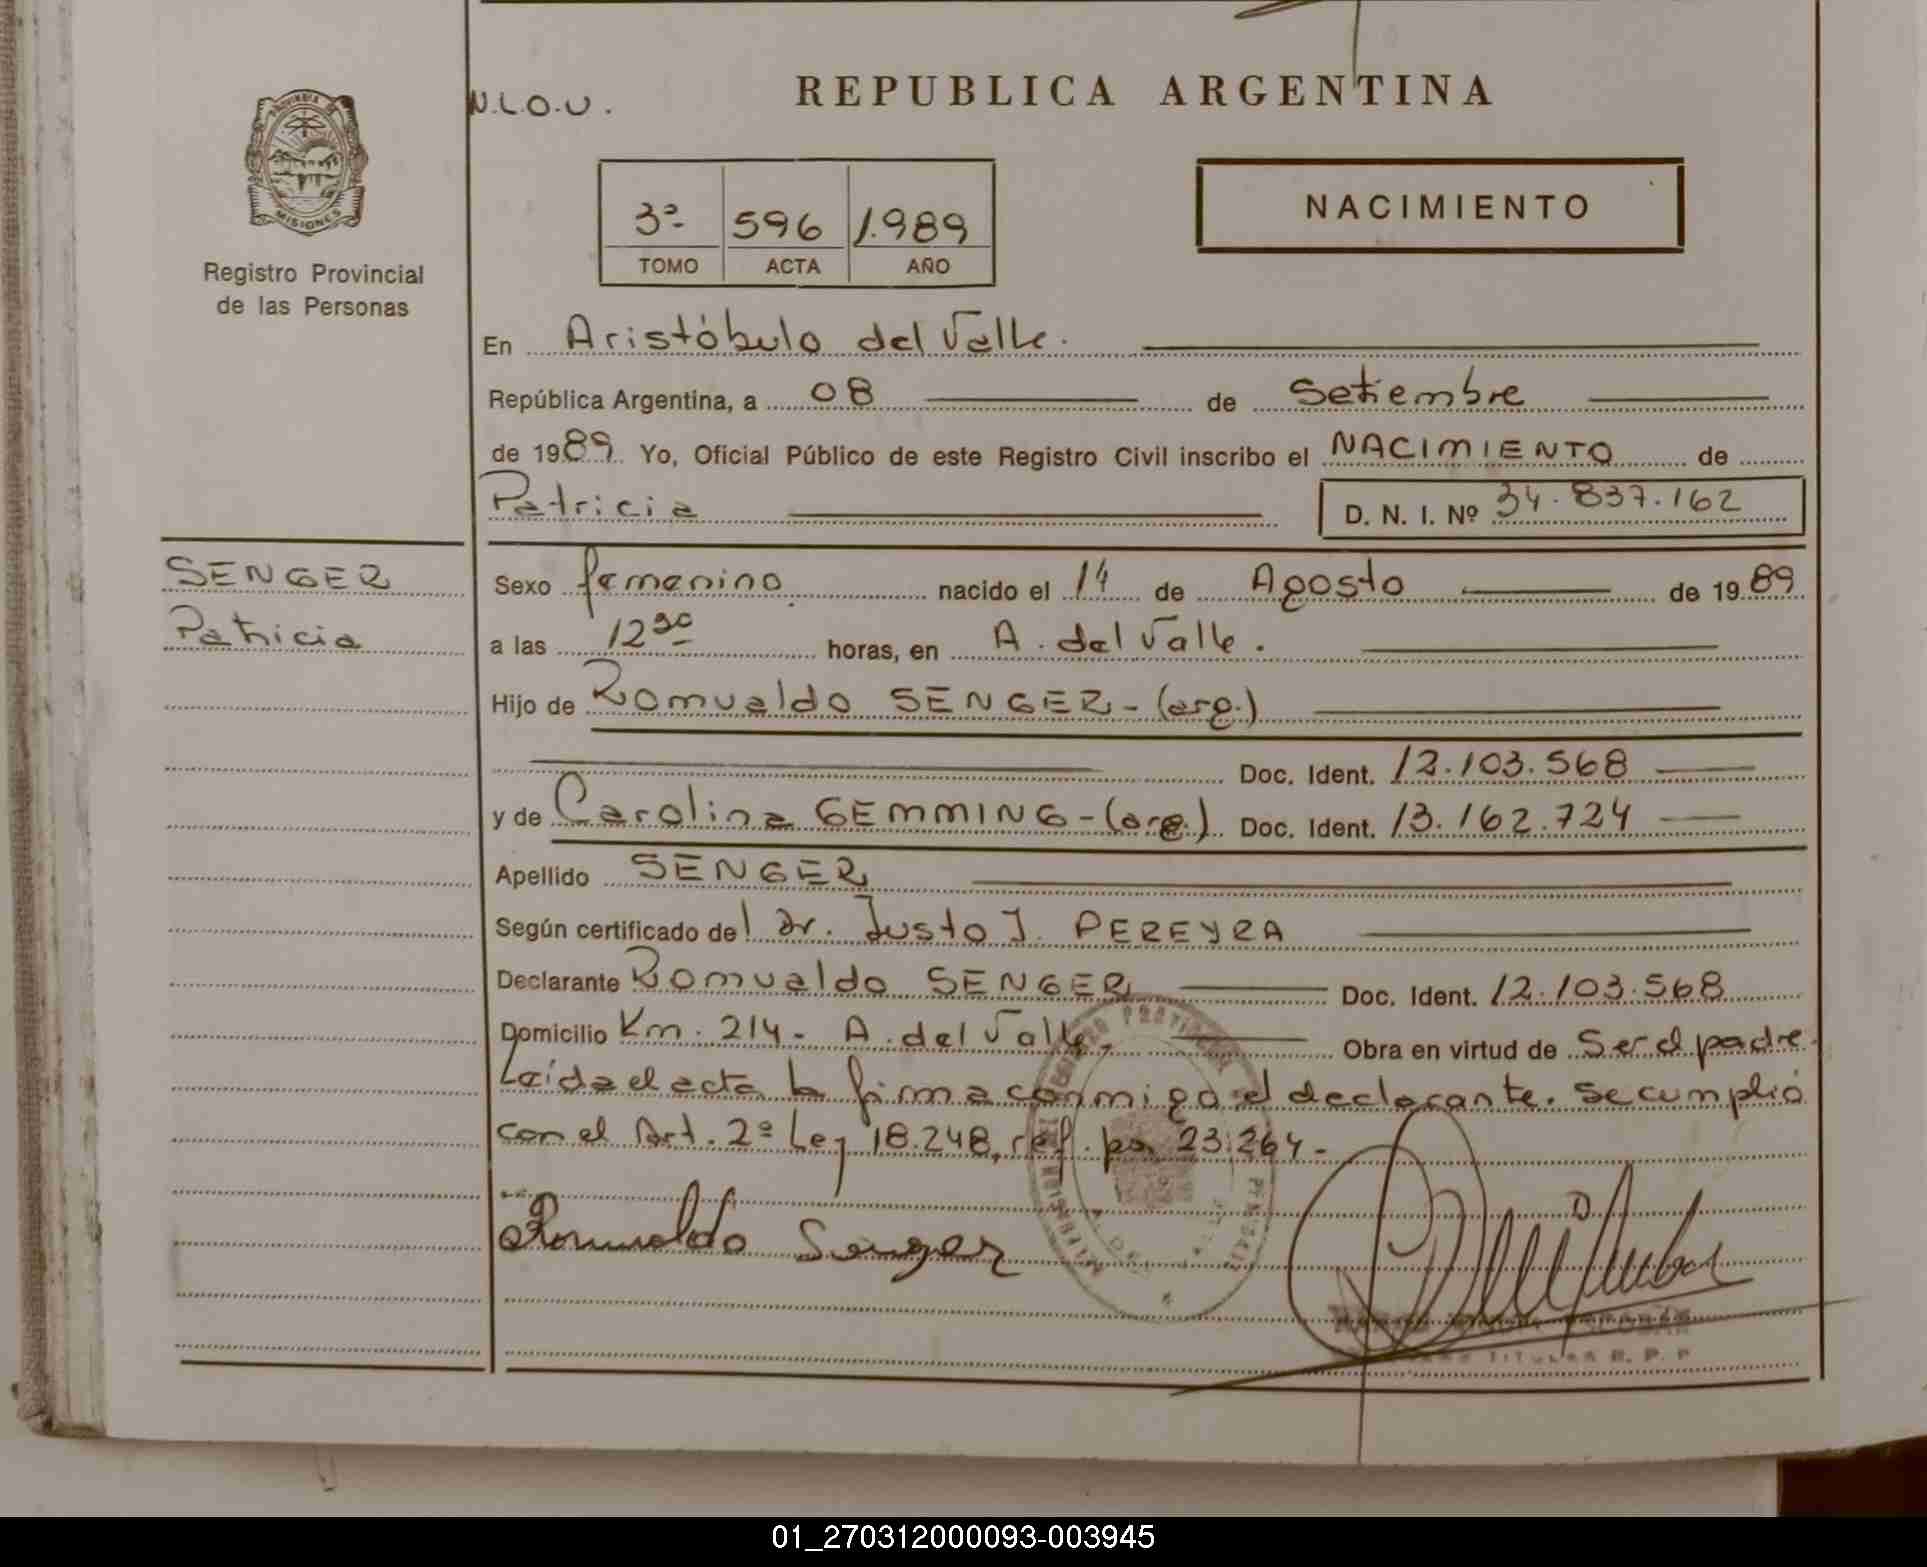 N.L.O.U.
REPUBLICA ARGENTINA
PROVINCIA DE
MISIONES
Registro Provincial
de las Personas
3º 596 1.989
TOMO ACTA AÑO
NACIMIENTO
En Aristóbulo del Valle.
República Argentina, a 08 de Setiembre
de 1989 Yo, Oficial Público de este Registro Civil inscribo el NACIMIENTO de
Patricia D. N. I. Nº 34.837.162
SENGER
Patricia
Sexo femenino nacido el 14 de Agosto de 1989
a las 12 30 horas, en A. del Valle.
Hijo de Romualdo SENGER - (arg.)
Doc. Ident. 12.103.568
y de Carolina GEMMING - (arg.) Doc. Ident. 13.162.724
Apellido SENGER
Según certificado del Dr. Justo J. PEREYRA
Declarante Romualdo SENGER Doc. Ident. 12.103.568
Domicilio Km. 214 - A. del Valle, Obra en virtud de Ser el padre.
Leída el acta la firma conmigo el declarante. Se cumplió
con el Art. 2º Ley 18.248, ref. por 23.264.-
Romualdo Senger
ESCOBAR
TITULAR R. P. P
01_270312000093-003945